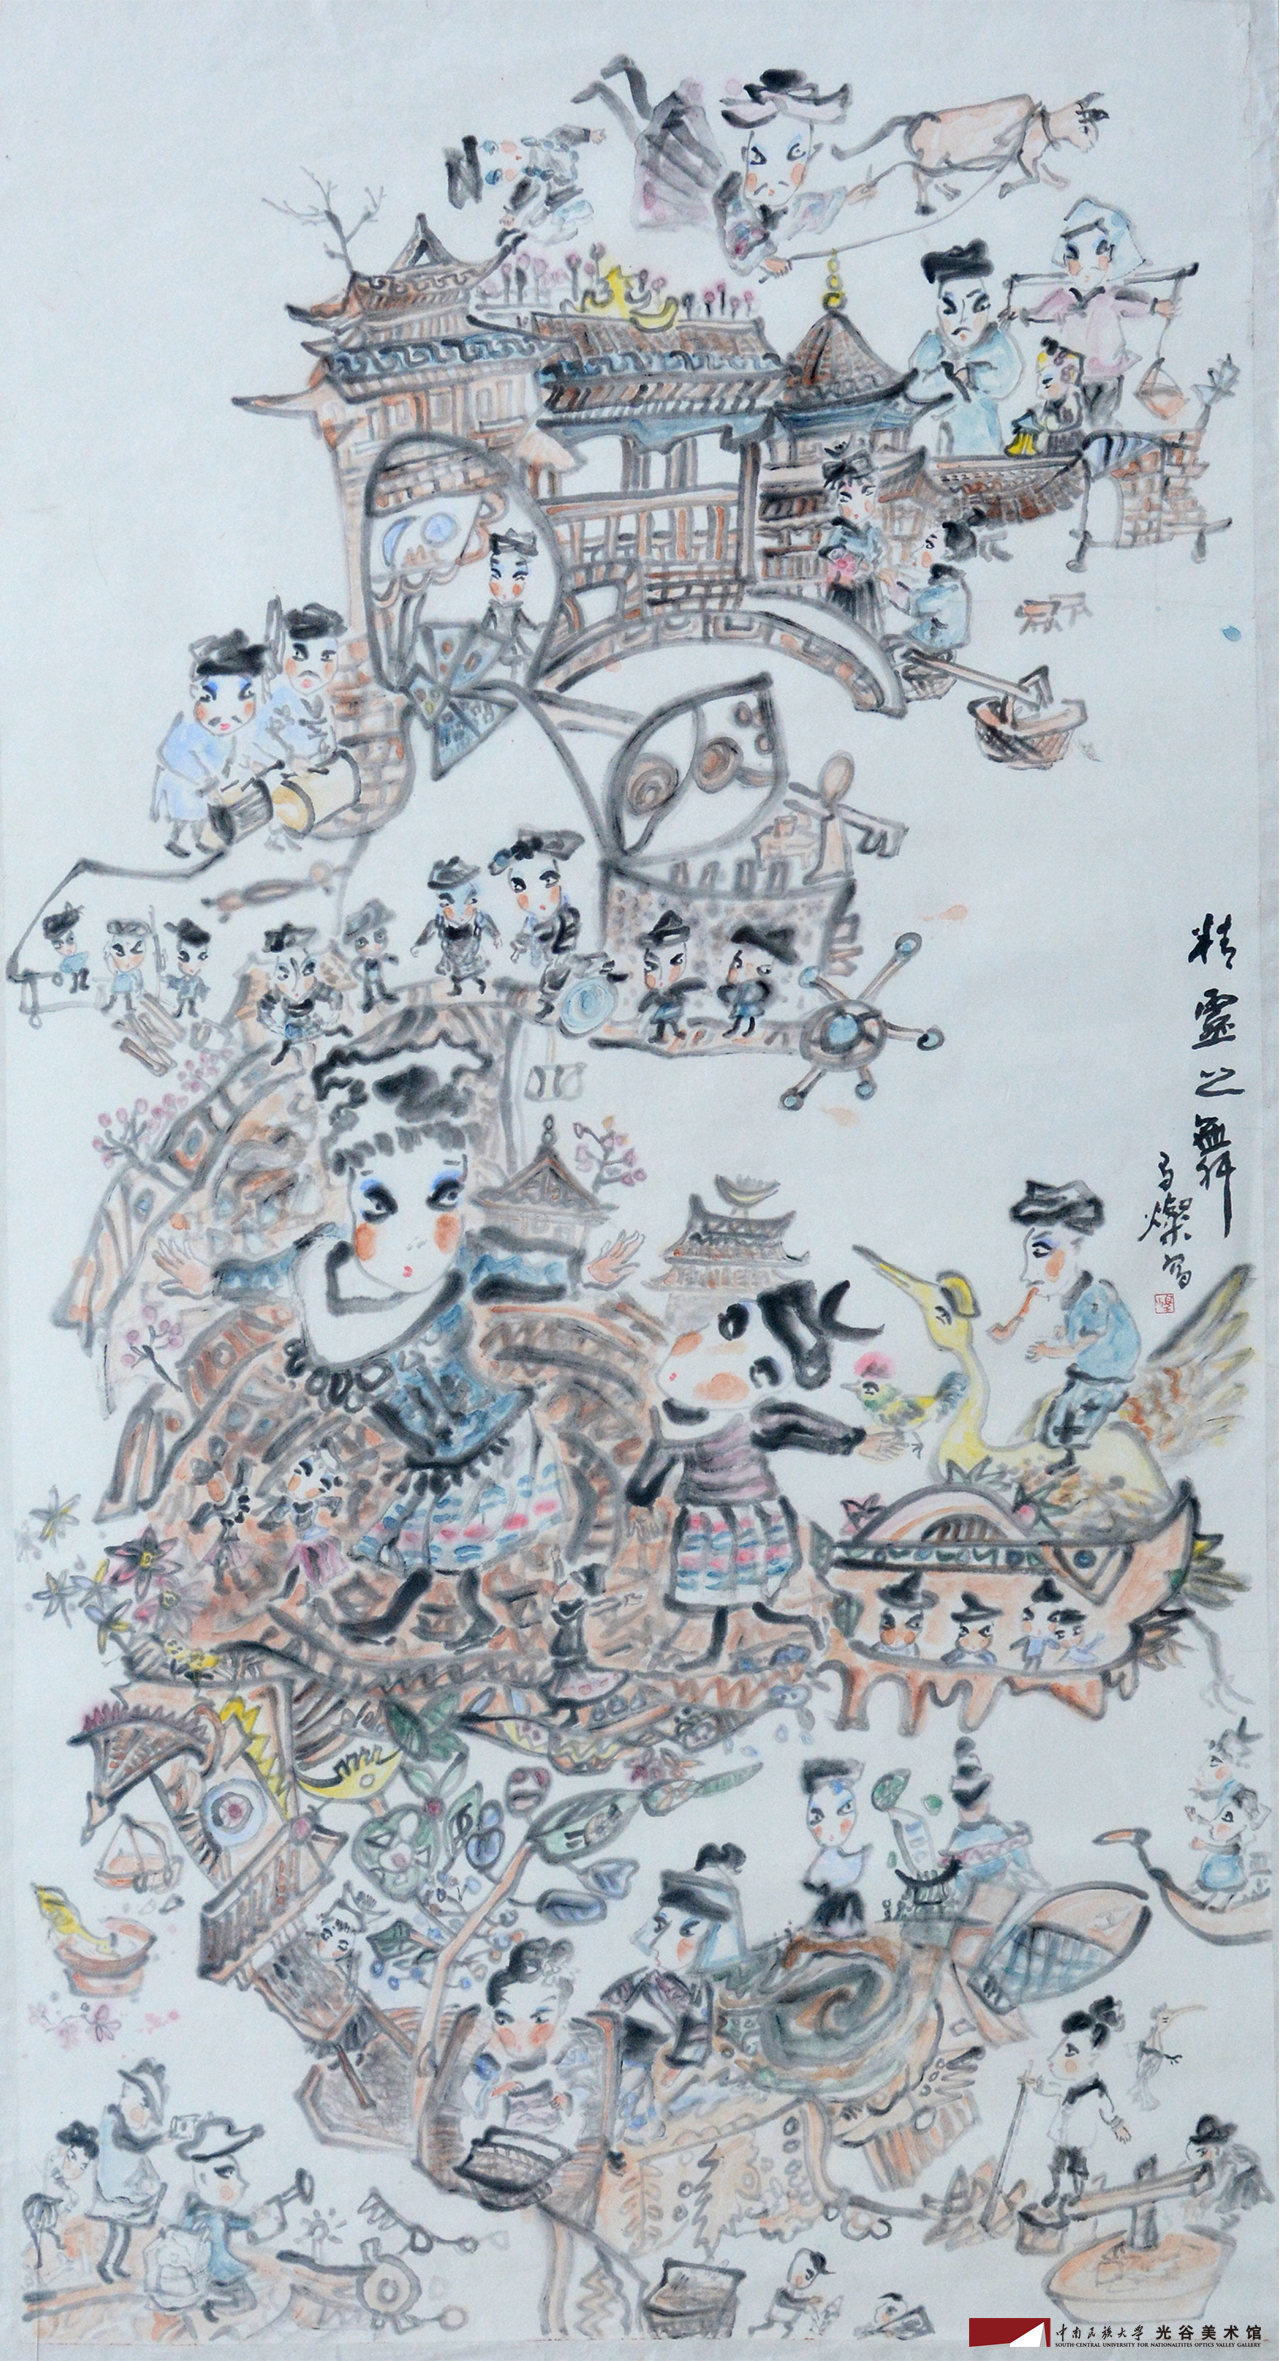 精靈之舞
马燦写
中南民族大学 光谷美术馆
SOUTH-CENTRAL UNIVERSITY FOR NATIONALTITES OPTICS VALLEY GALLERY